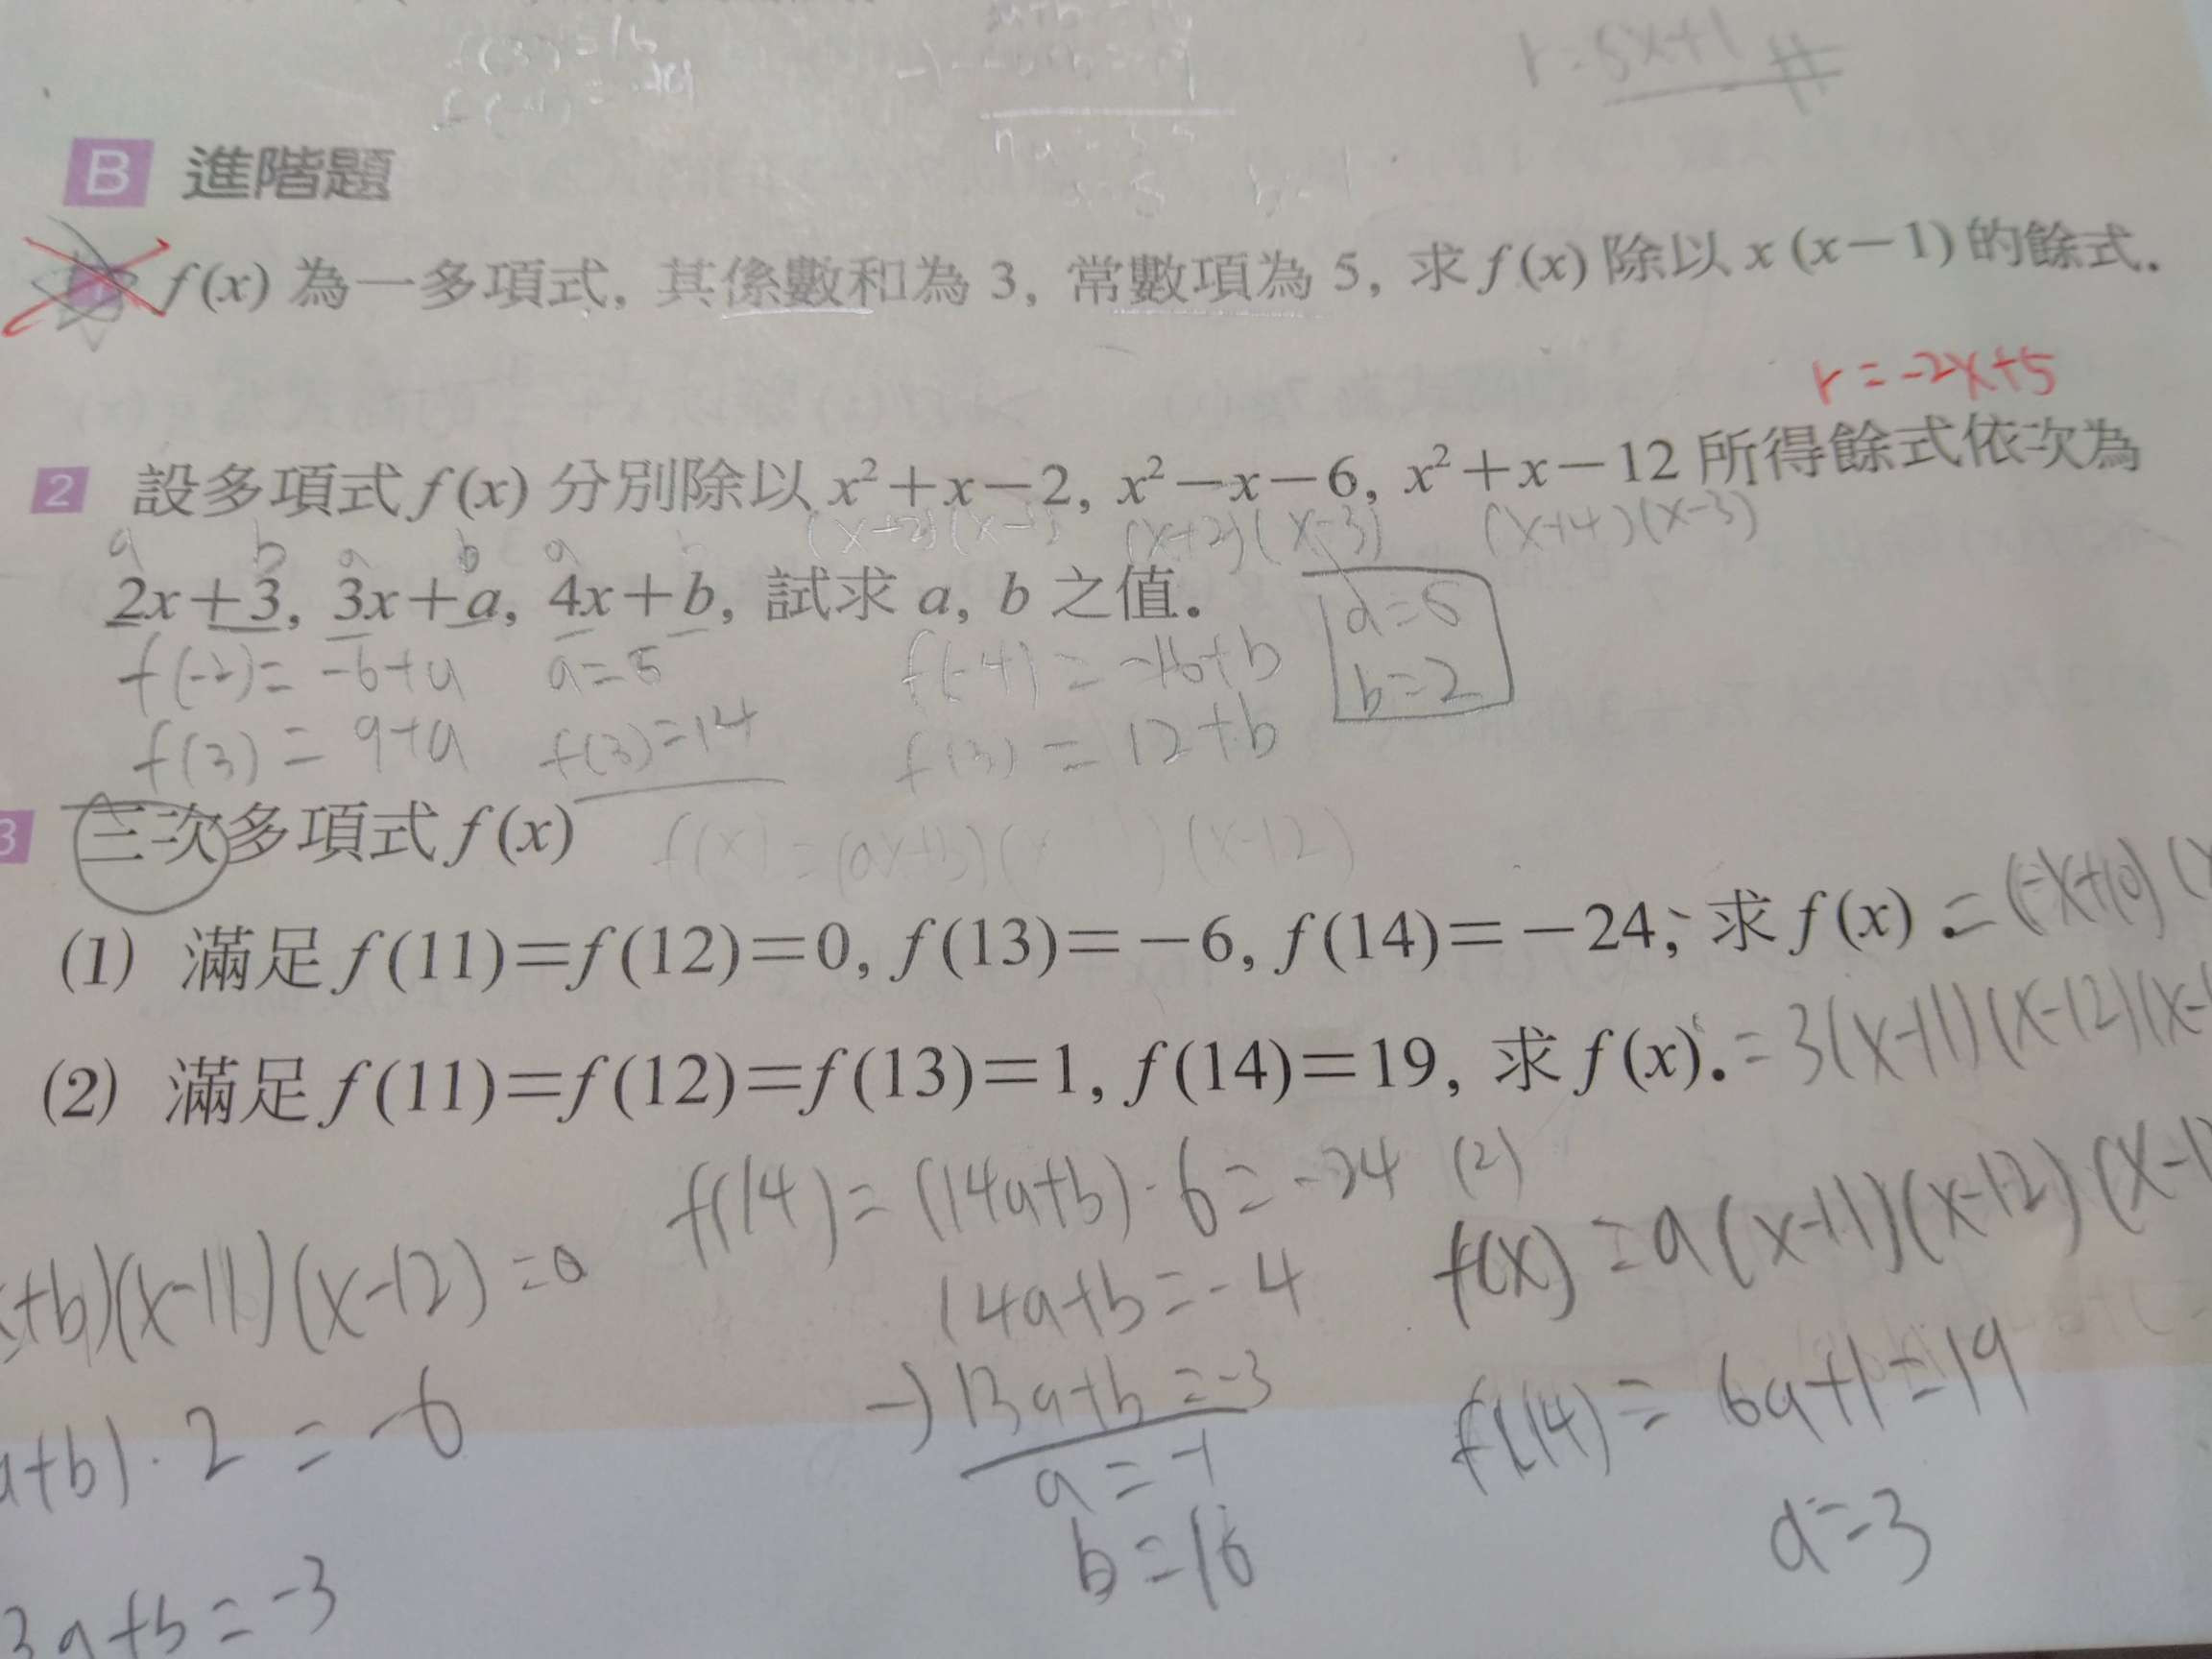 r=5x+1
B 進階題
f(x) 為一多項式, 其係數和為 3, 常數項為 5, 求 f(x) 除以 x(x－1) 的餘式.
r=-2x+5
2 設多項式 f(x) 分別除以 x²＋x－2, x²－x－6, x²＋x－12 所得餘式依次為
(x+2)(x-1) (x+2)(x-3) (x+4)(x-3)
a b a b a
2x＋3, 3x＋a, 4x＋b, 試求 a, b 之值.
f(-2)=-6+a a=5 f(-4)=-16+b
f(3)=9+a f(3)=14 f(3)=12+b
a=5
b=2
3 三次多項式 f(x)
f(x)=(ax+b)( )(x-12)
(1) 滿足 f(11)=f(12)=0, f(13)=－6, f(14)=－24, 求 f(x). =(-x+10)(x
(2) 滿足 f(11)=f(12)=f(13)=1, f(14)=19, 求 f(x). =3(x-11)(x-12)(x-1
+b)(x-11)(x-12)=0
+b)·2=-6
3a+b=-3
f(14)=(14a+b)·6=-24
14a+b=-4
-)13a+b=-3
a=-1
b=10
(2)
f(x)=a(x-11)(x-12)(x-1
f(14)=6a+1=19
a=3